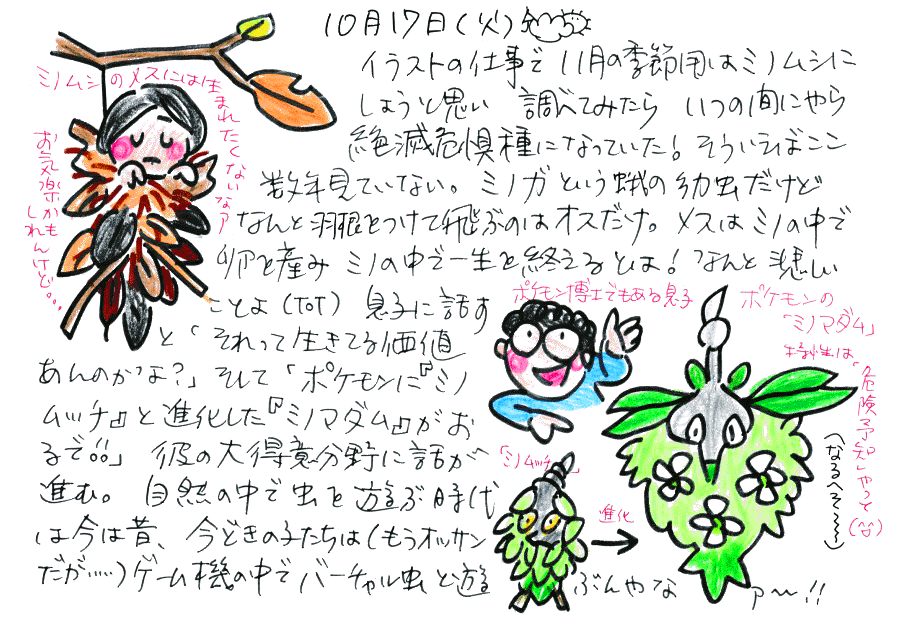 10月17日(火)
イラストの仕事で 11月の季節用はミノムシに
しようと思い 調べてみたら いつの間にやら
絶滅危惧種になっていた!そういえばここ
数年見ていない。ミノガという蛾の幼虫だけど
なんと羽根をつけて飛ぶのはオスだけ。メスはミノの中で
卵を産み ミノの中で一生を終えるとは!なんと悲しい
ことよ(ToT) 息子に話す
と「それって生きてる価値
あんのかな?」そして「ポケモンに『ミノ
ムッチ』と進化した『ミノマダム』がお
るで。」彼の大得意分野に話が
進む。自然の中で虫を遊ぶ時代
は今は昔、今どきの子たちは(もうオッサン
だが……)ゲーム機の中でバーチャル虫と遊
ぶんやな
ァ〜!!
ミノムシのメスには生まれたくないなァ
お気楽かも
しれんけど。。。
ポケモン博士でもある息子
ポケモンの
「ミノマダム」
特性は
「危険予知」やって(^^)
(なるへそ〜〜〜)
「ミノムッチ」
進化